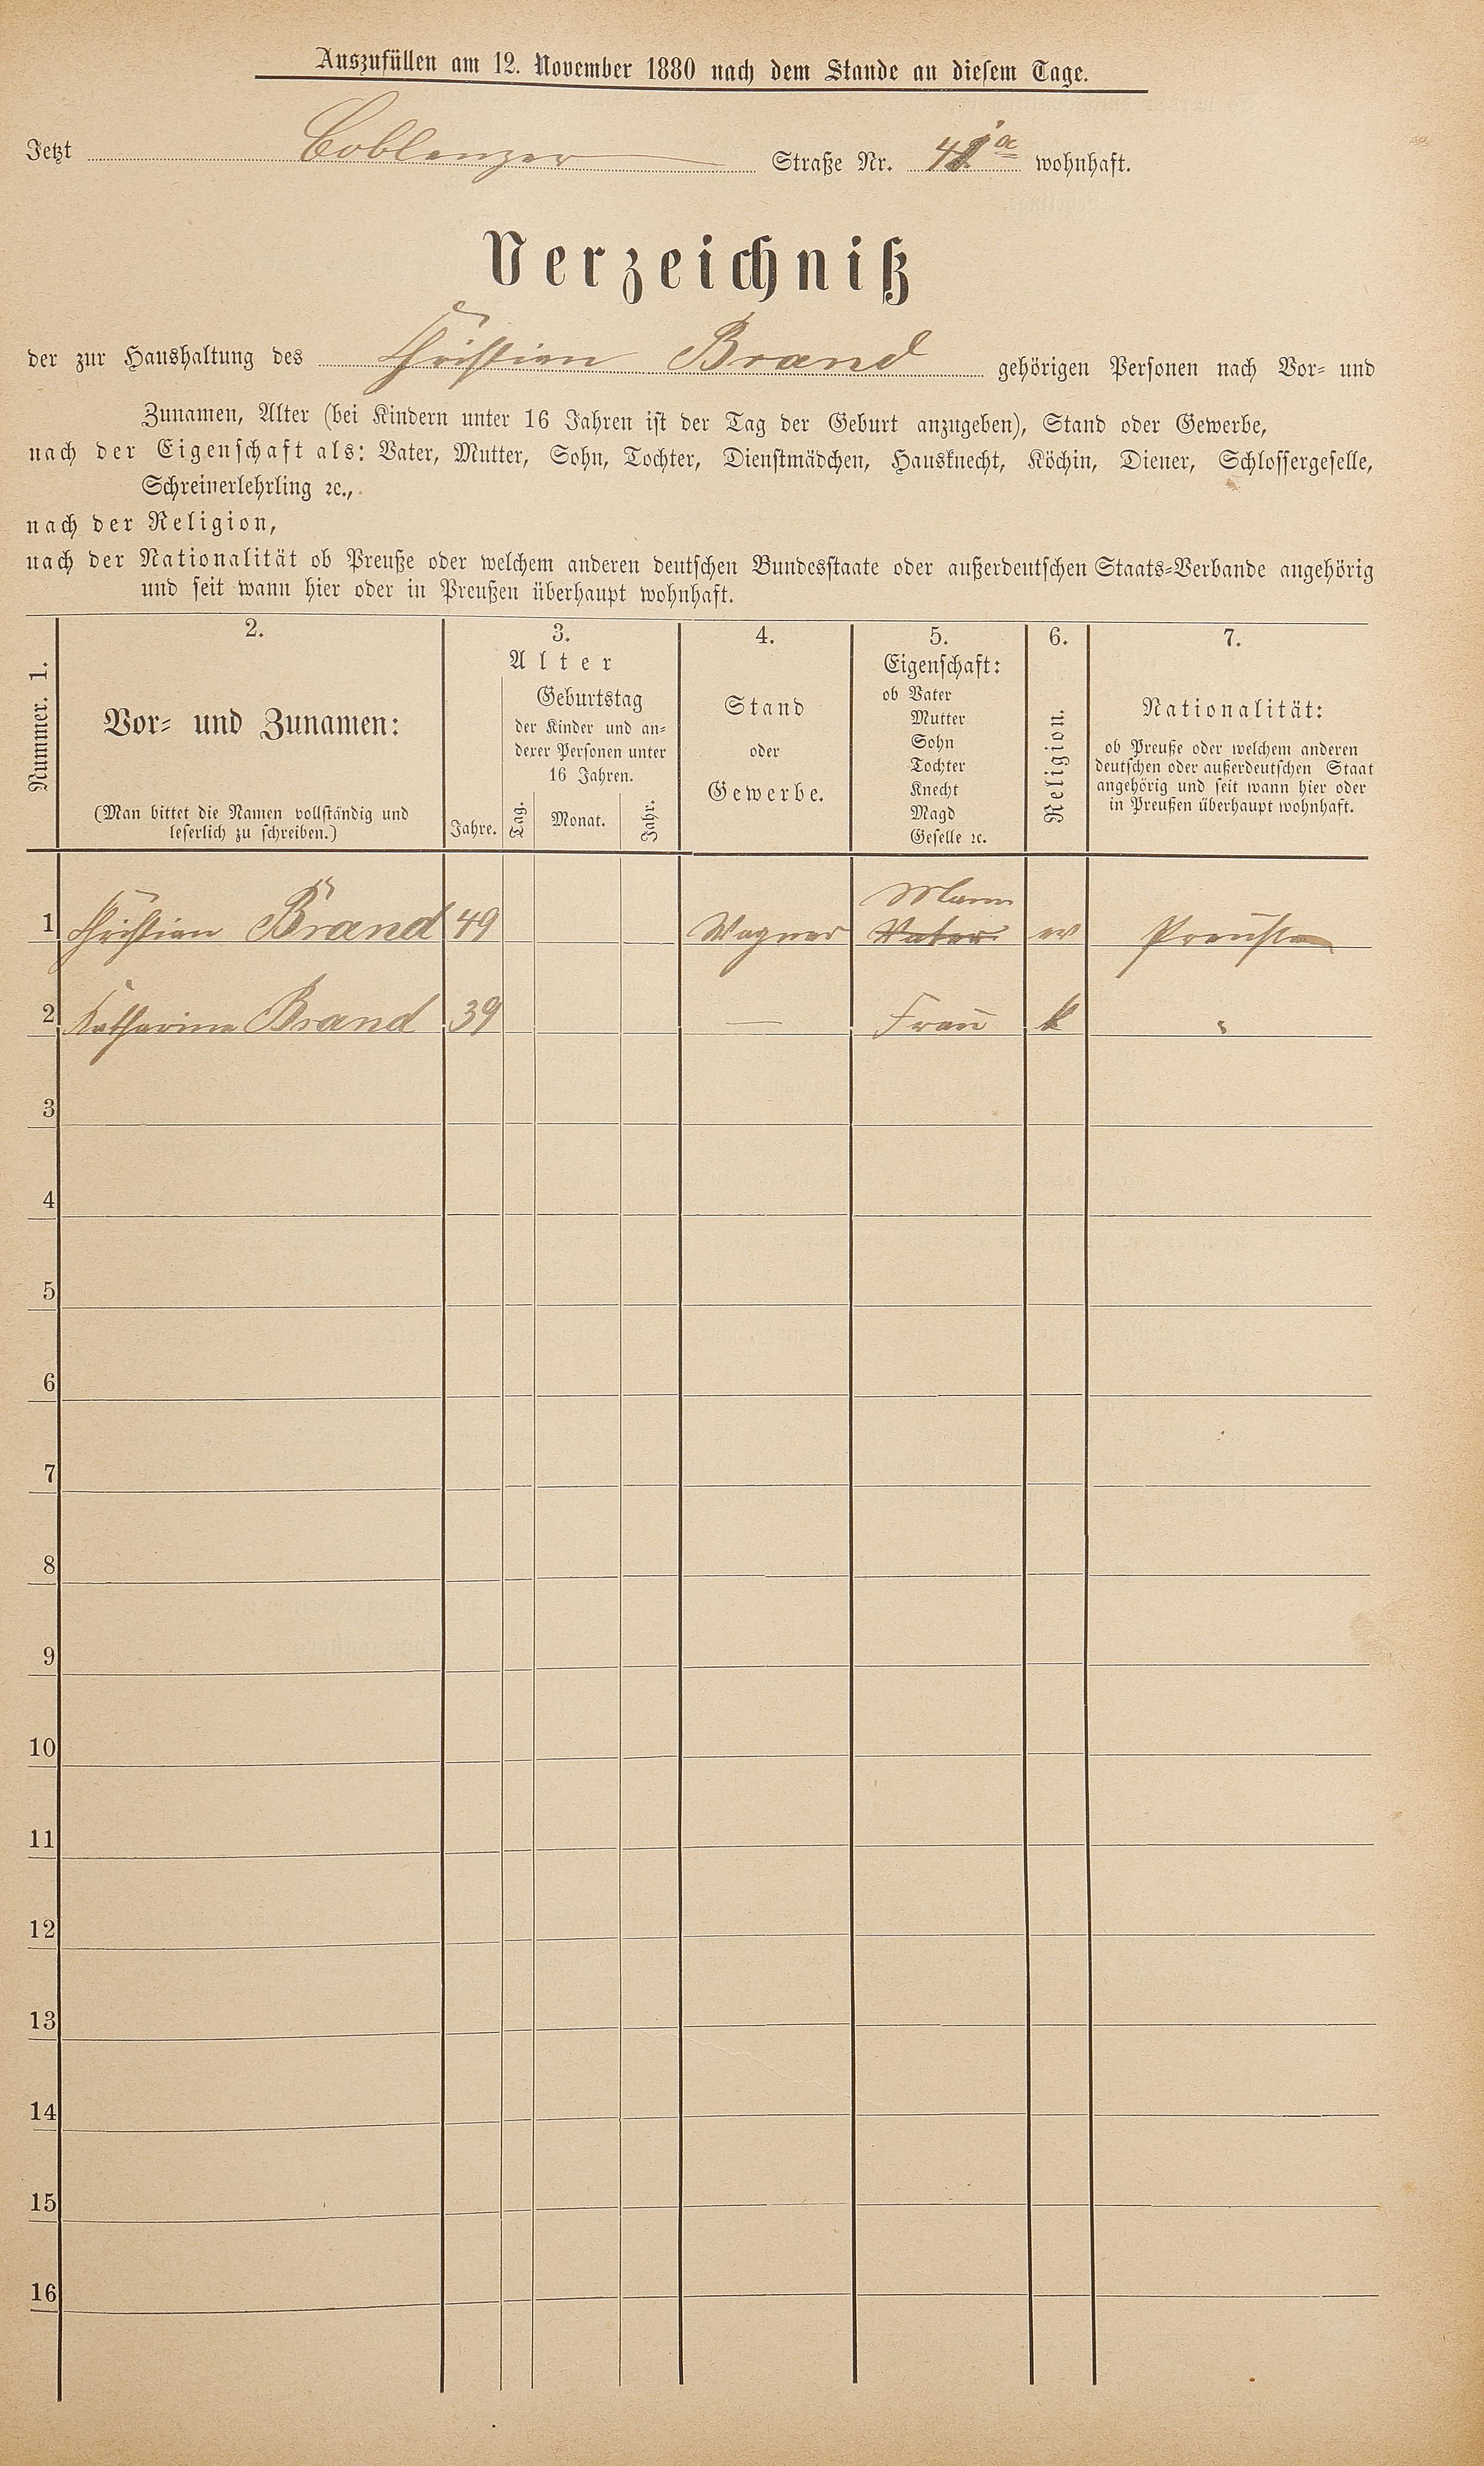 Auszufüllen am 12. November 1880 nach dem Stande an diesem Tage.
Jetzt Coblenzer Straße Nr. wohnhaft.
Verzeichniß
der zur Haushaltung des Christian Brand gehörigen Personen nach Vor- und
Zunamen, Alter (bei Kindern unter 16 Jahren ist der Tag der Geburt anzugeben), Stand oder Gewerbe,
nach der Eigenschaft als: Vater, Mutter, Sohn, Tochter, Dienstmädchen, Hausknecht, Köchin, Diener, Schlossergeselle,
Schreinerlehrling ꝛc.,
nach der Religion,
nach der Nationalität ob Preuße oder welchem anderen deutschen Bundesstaate oder außerdeutschen Staats-Verbande angehörig
und seit wann hier oder in Preußen überhaupt wohnhaft.
Nummer. 1.
2.
Vor- und Zunamen:
(Man bittet die Namen vollständig und
leserlich zu schreiben.)
3.
Alter
Jahre.
Geburtstag
der Kinder und an-
derer Personen unter
16 Jahren.
Tag. Monat. Jahr.
4.
Stand
oder
Gewerbe.
5.
Eigenschaft:
ob Vater
Mutter
Sohn
Tochter
Knecht
Magd
Geselle ꝛc.
6.
Religion.
7.
Nationalität:
ob Preuße oder welchem anderen
deutschen oder außerdeutschen Staat
angehörig und seit wann hier oder
in Preußen überhaupt wohnhaft.
Mann
1 Christian Brand 49 Wagner Vater ev Preuße
2 Katharina Brand 39 — Frau k "
3
4
5
6
7
8
9
10
11
12
13
14
15
16